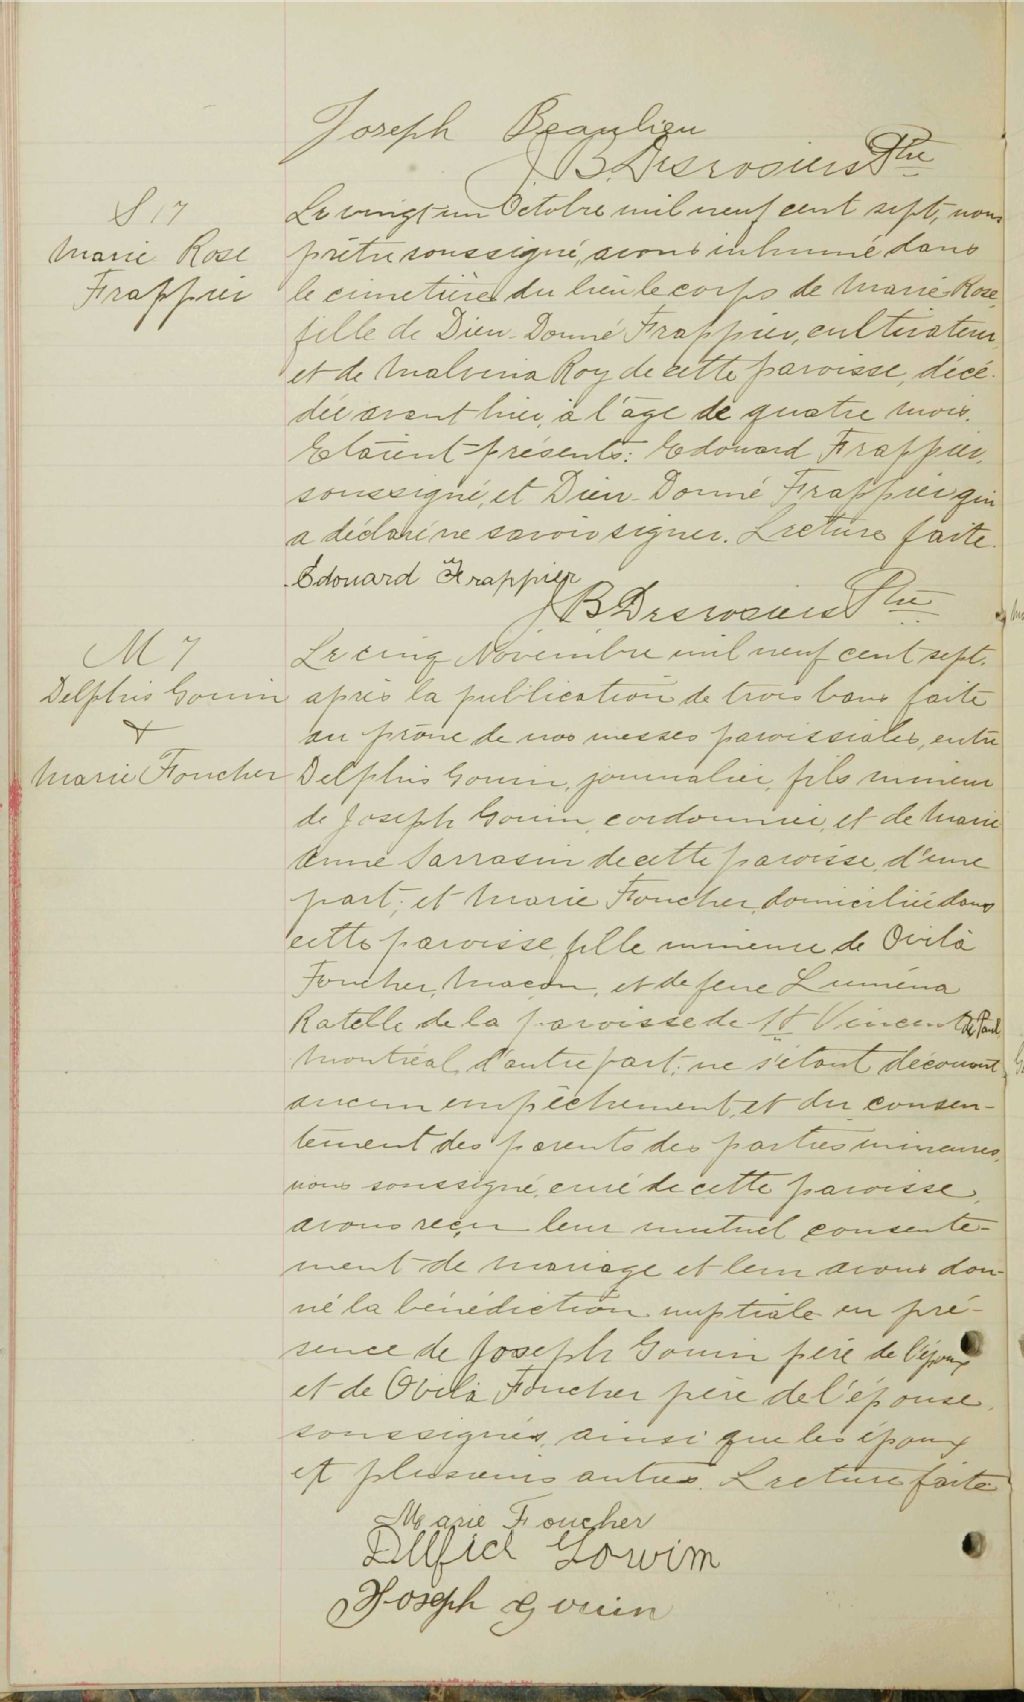 Joseph Beaulieu
J B. Desrosiers Ptre
S 17
Marie Rose
Frappier
Le vingt un Octobre mil neuf cent sept, nous
prêtre soussigné, avons inhumé dans
le cimetière du lieu le corps de Marie-Rose,
fille de Dieu-Donné Frappier, cultivateur,
et de Malvina Roy de cette paroisse, décé-
dée avant hier, à l'âge de quatre mois.
Etaient présents: Edouard Frappier,
soussigné, et Dieu-Donné Frappier qui
a déclaré ne savoir signer. Lecture faite.
Edouard Frappier
J B Desrosiers Ptre
M 7
Delphis Gouin
&
Marie Foucher
Le cinq Novembre mil neuf cent sept,
après la publication de trois bans faite
au prône de nos messes paroissiales, entre
Delphis Gouin, journalier, fils mineur
de Joseph Gouin, cordonnier, et de Marie
Anne Sarrasin de cette paroisse, d'une
part; et Marie Foucher, domiciliée dans
cette paroisse, fille mineure de Ovila
Foucher, maçon, et de feue Luména
Ratelle de la paroisse de St Vincent de Paul
Montréal, d'autre part; ne s'étant découvert
aucun empêchement, et du consen-
tement des parents des parties mineures,
nous soussigné, curé de cette paroisse,
avons reçu leur mutuel consente-
ment de mariage et leur avons don-
né la bénédiction nuptiale en pré-
sence de Joseph Gouin père de l'époux
et de Ovila Foucher père de l'épouse,
soussignés, ainsi que les époux
et plusieurs autres. Lecture faite
Marie Foucher
Dellfice Gowim
Joseph Gouin